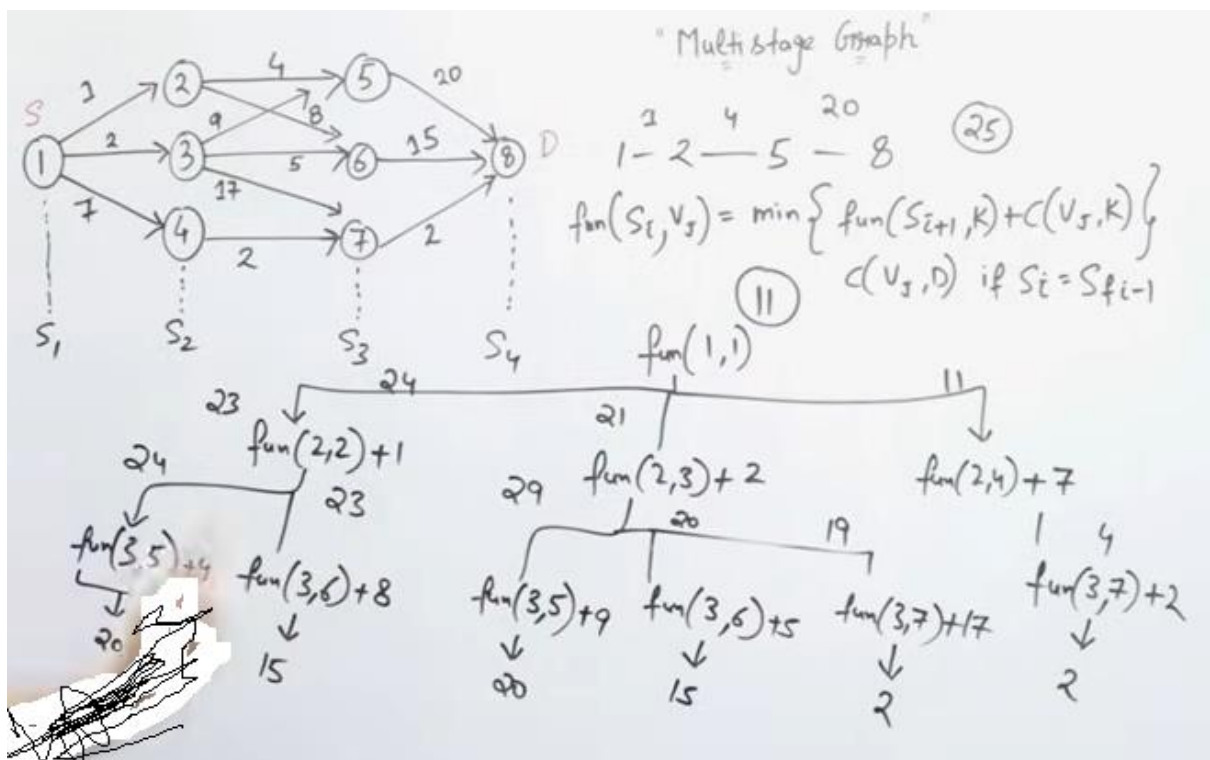 "Multistage Graph"
S
1 2 3 4 5 6 7 8
D
1 2 7
4 8 9 5 17 2
20 15 2
S1 S2 S3 S4
1 4 20
1 - 2 — 5 — 8
25
fun(Si, VJ) = min{ fun(Si+1, K) + C(VJ, K) }
C(VJ, D) if Si = Sfi-1
11
fun(1,1)
24 11
23 21
fun(2,2)+1 fun(2,3)+2 fun(2,4)+7
24 23 29 20 19 4
fun(3,5)+4 fun(3,6)+8 fun(3,5)+9 fun(3,6)+5 fun(3,7)+17 fun(3,7)+2
20 15 20 15 2 2